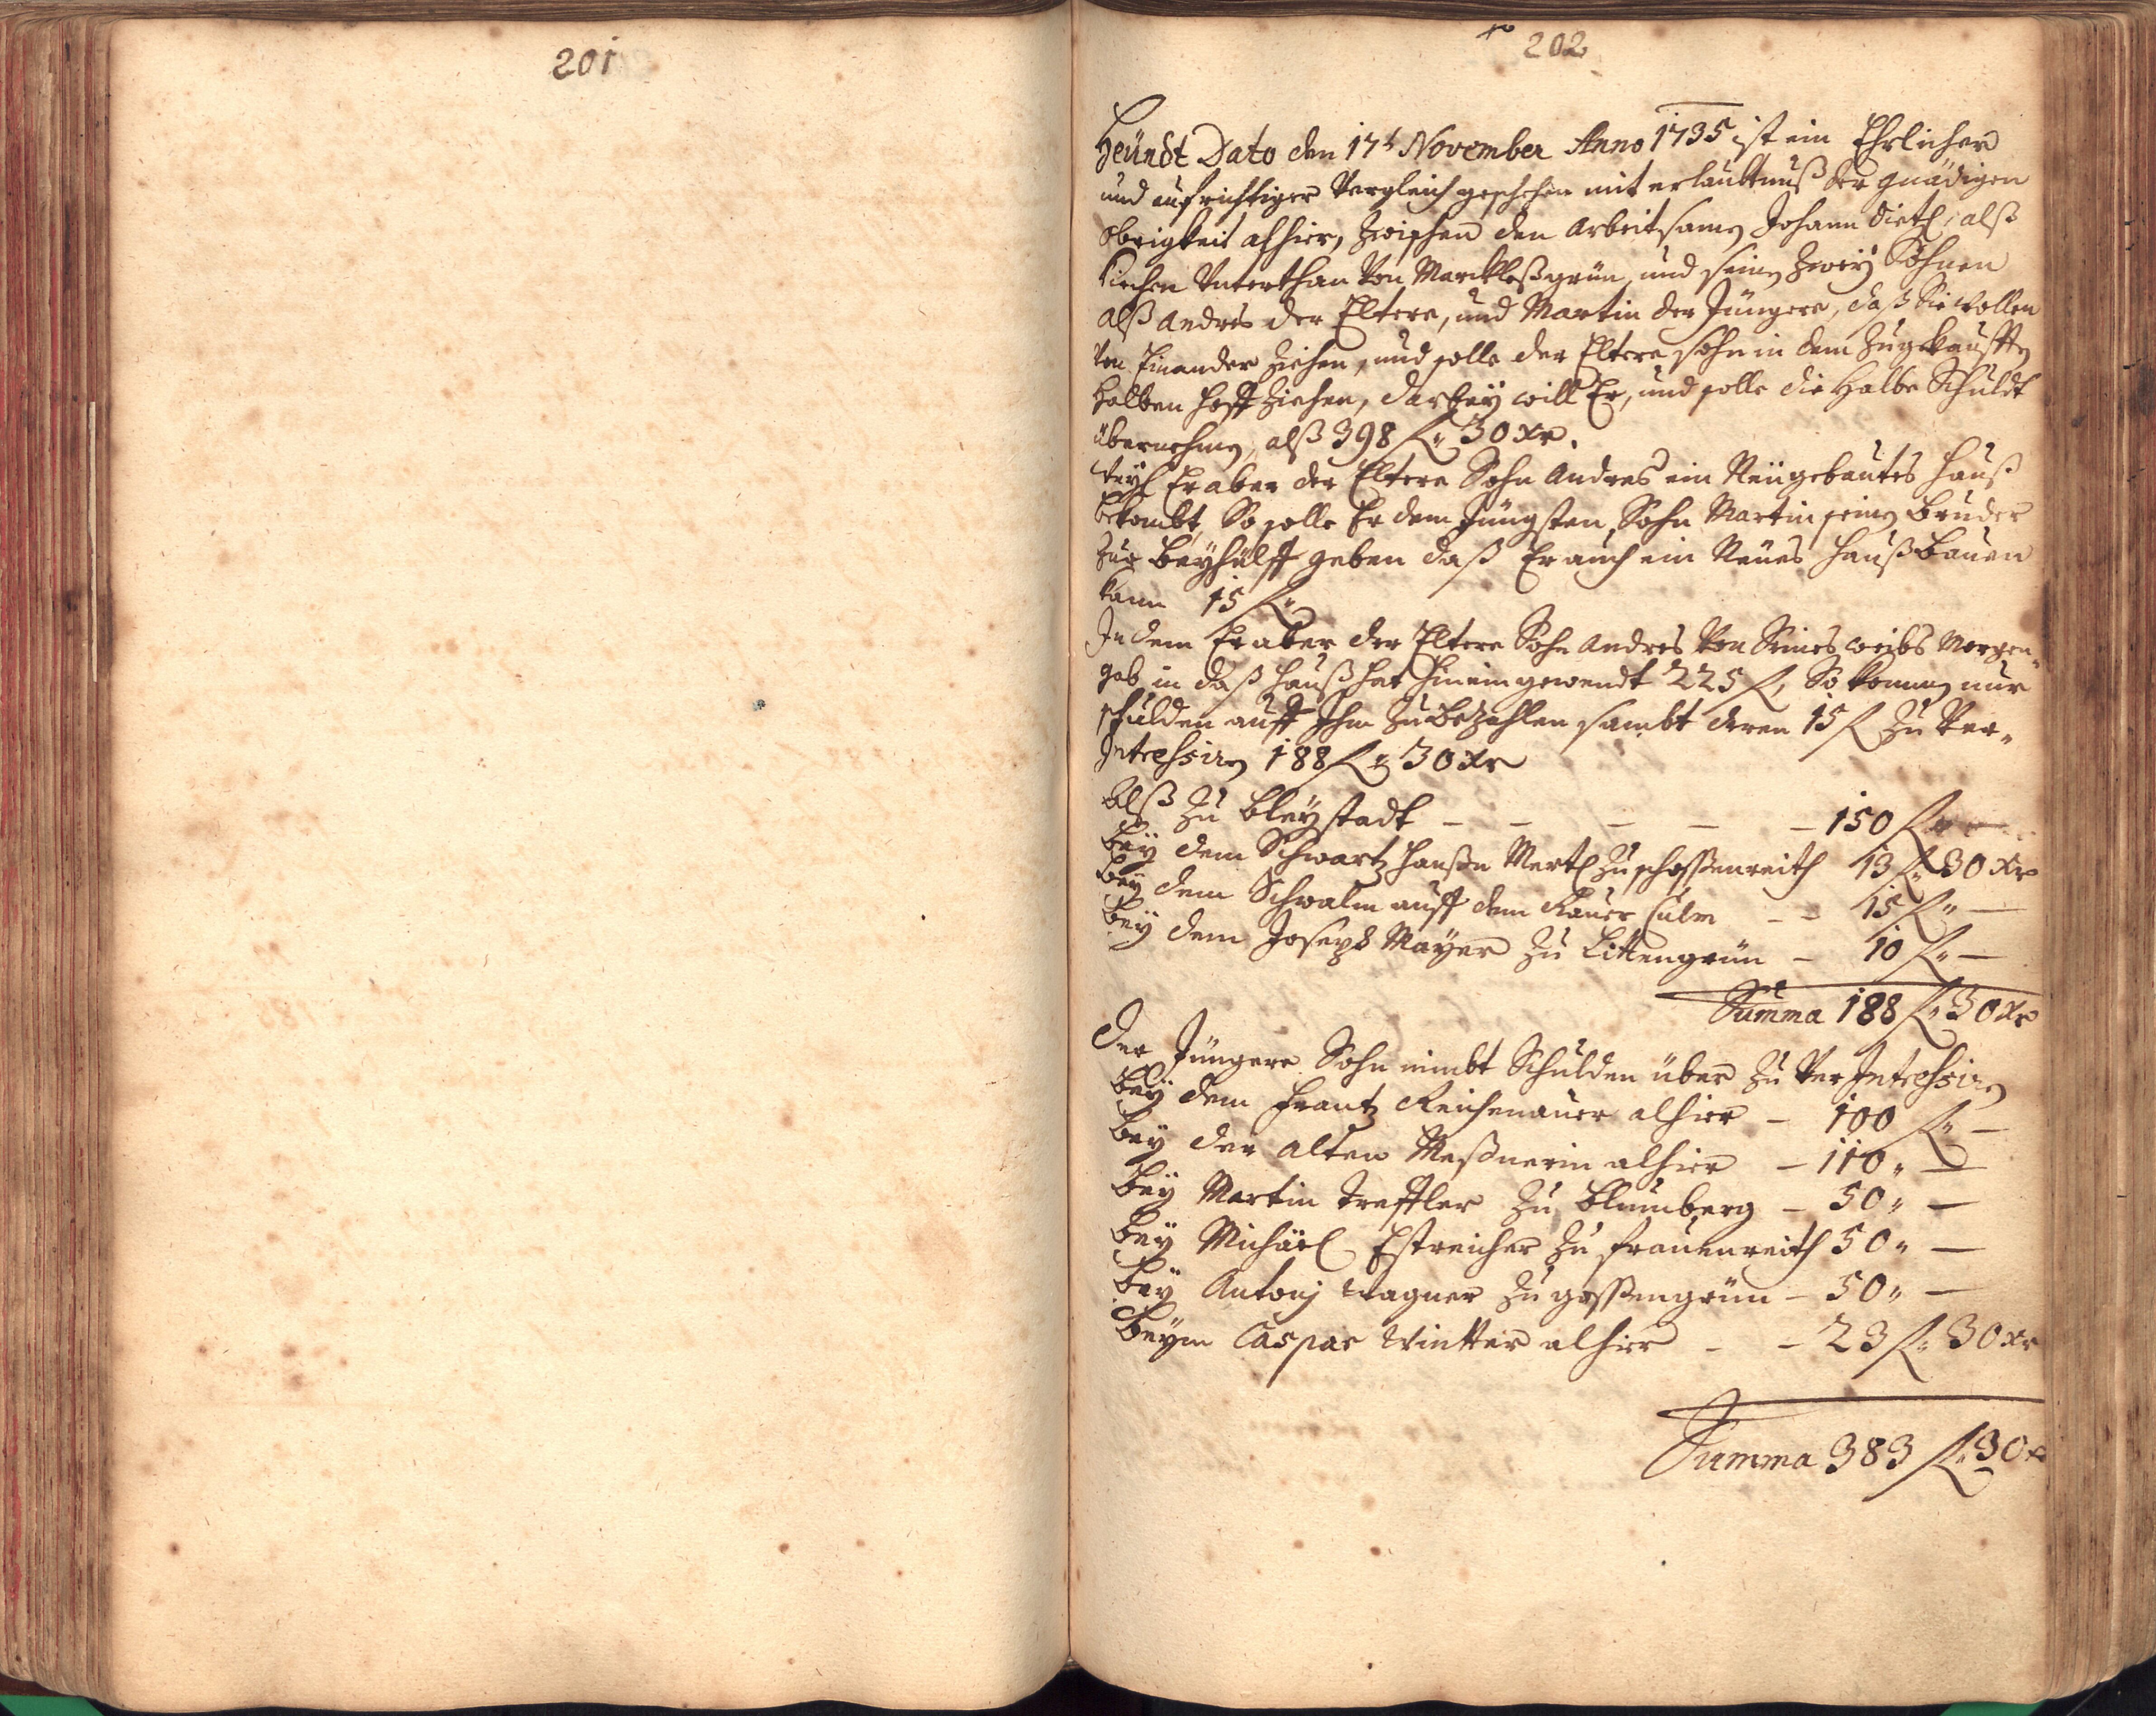 201
202
Heündt Dato den 17t November Anno 1735 ist ein Ehrlicher
und aufrichtiger Vergleich geschehen mit erlaubtnuß der gnädigen
Obrigkeit alhier, zwischen den Arbeitsamen Johann Dietl, alß
Kirchen Unterthan von Marckleßgrün, und seinen Zweÿ Söhnen
alß Andres der Eltere, und Martin der Jüngere, daß sie wollen
von Einander ziehen, und solle der Eltere Sohn in dem Zugekaufften
Halben Hoff ziehen, darbeÿ will Er, und solle die Halbe Schuldt
übernehmen, alß 398 f„ 30 xr.
Weÿl Er aber der Eltere Sohn Andres ein Neügebautes Hauß
bekombt, So solle Er dem Jüngsten Sohn Martin seinen Bruder
Zur Beÿhülff geben daß Er auch ein Neües Hauß bauen
kann 15 f„
In dem Er aber der Eltere Sohn Andres von Seines Weibs Morgen„
gab in daß Hauß hat hinein gewendt 225 f, So kommen nur
schulden auff Ihm zu bezahlen sambt deren 15 f zu Ver„
Intressiren 188 f„ 30 xr
Alß zu Bleÿstadt – – – – – 150 f„ –
beÿ dem Schwartz Hanßn Mertl zu schossenreith 13 f„ 30 xr
beÿ dem Schwalm auff dem Kauer Culm – – 15 f„ –
beÿ dem Joseph Maÿer zu Littengrün – 10 f„ –
Summa 188 f„ 30 xr
Der Jüngere Sohn nimbt Schulden über zu Ver Intressiren
beÿ dem Frantz Reichenauer alhier – 100 f„ –
beÿ der alten Meßnerin alhier – 110 „ –
beÿ Martin Treffler zu Blumberg – 50 „ –
beÿ Michäel Estreicher zu Frauenreith 50 „ –
beÿ Antonj Wagner zu gossengrün – 50 „ –
beÿm Caspar Wintter alhier – – 23 f„ 30 xr
Summa 383 f„ 30 x